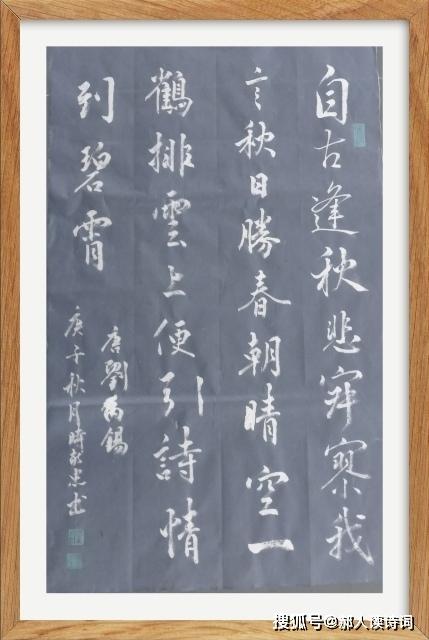 自古逢秋悲寂寥我
言秋日勝春朝晴空一
鶴排雲上便引詩情
到碧霄
唐劉禹錫
庚子秋月時忠书
搜狐号@郝人溪诗词